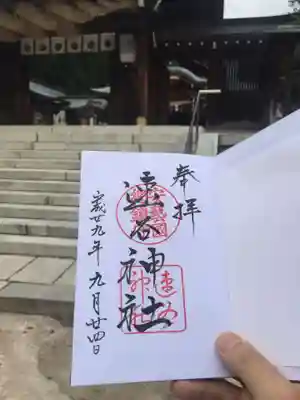 奉拝
速谷神社
速谷
神社
平成廿九年九月廿四日